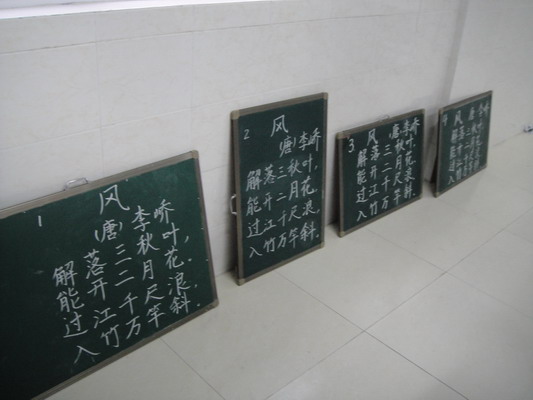 1
风
(唐)李峤
解落三秋叶,
能开二月花,
过江千尺浪,
入竹万竿斜.
2
风
(唐)李峤
解落三秋叶
能开二月花
过江千尺浪,
入竹万竿斜.
3
风
(唐)李峤
解落三秋叶,
能开二月花,
过江千尺浪,
入竹万竿斜.
4
风
唐 李峤